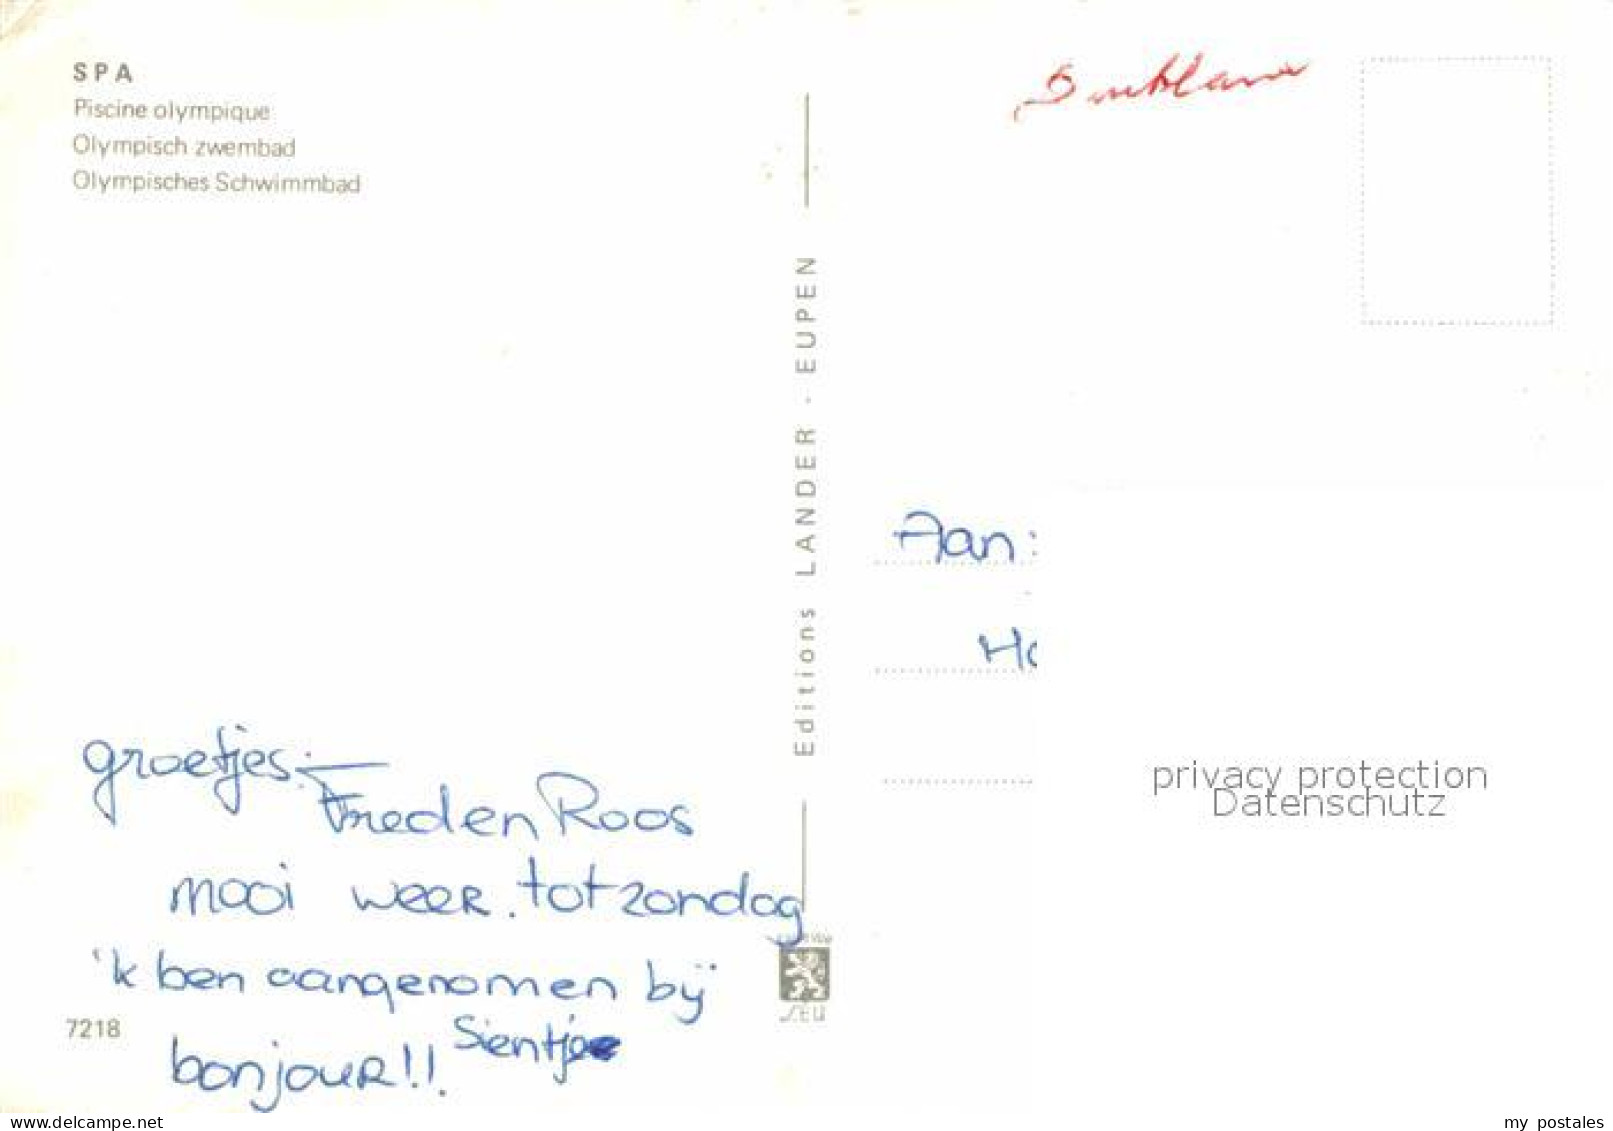 SPA
Piscine olympique
Olympisch zwembad
Olympisches Schwimmbad
Editions LANDER - EUPEN
Aan:
groetjes:
Fred en Roos
mooi weer. tot zondag
'k ben aangenomen bij
bonjour!! Sientje
7218
LEU
privacy protection
Datenschutz
www.delcampe.net
my_postales